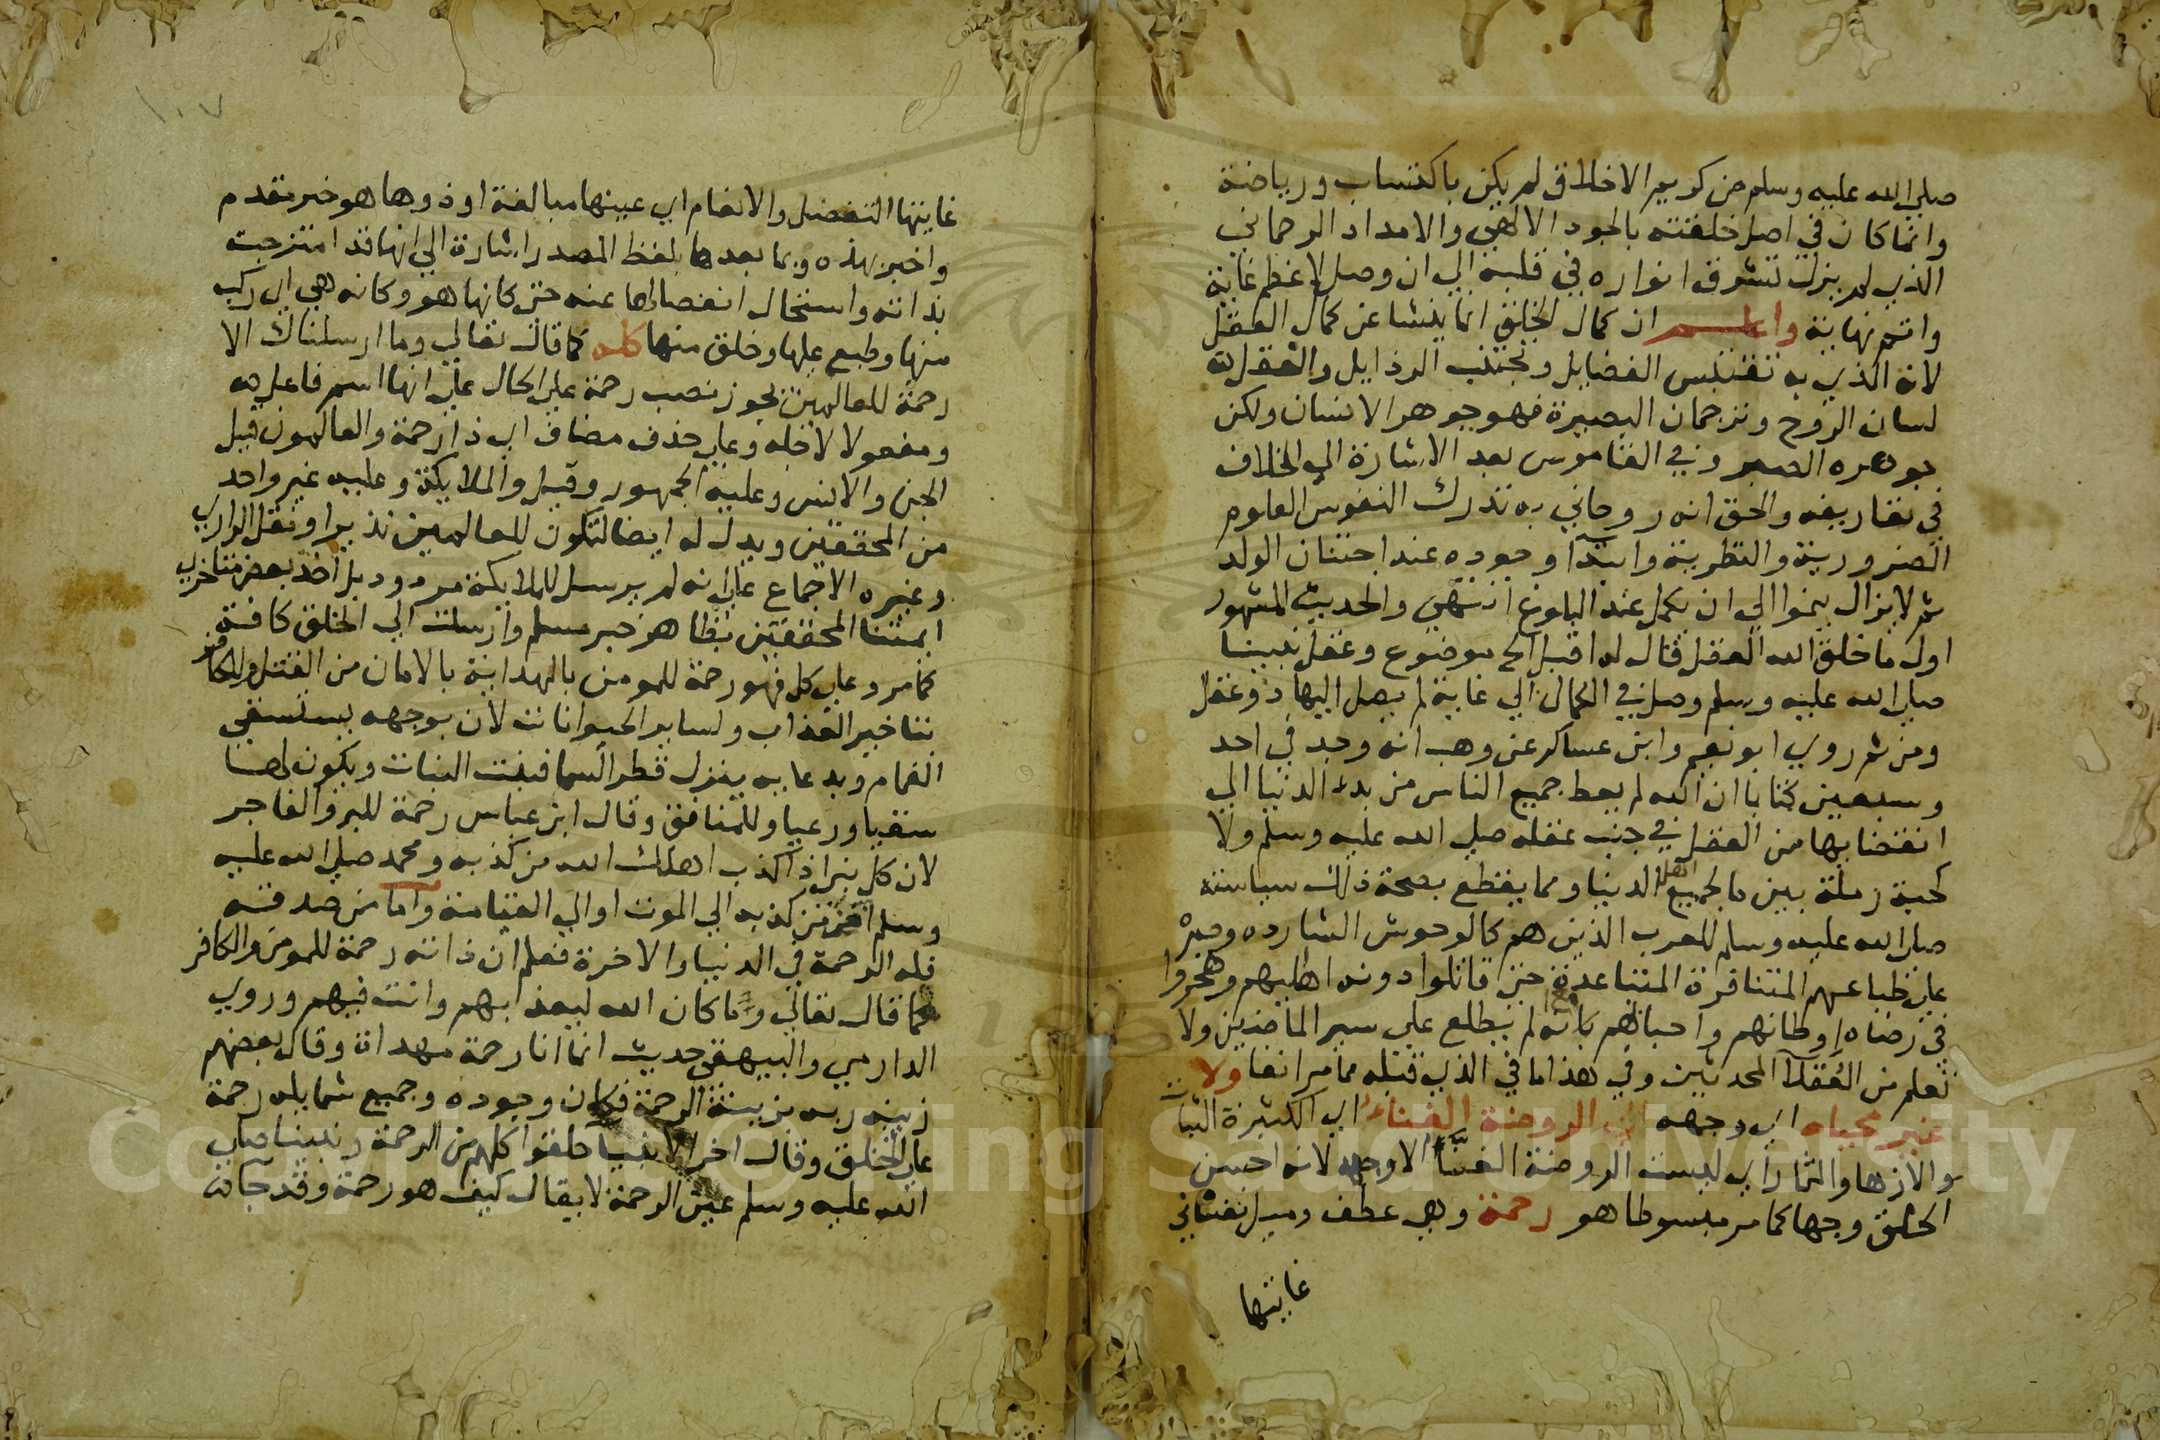 صلي الله عليه وسلم من كريم الاخلاق لم يكن باكتساب ورياضة
وانما كان في اصل خلقته بالجود الالهي والامداد الرحماني
الذي لم يزل تشرق انواره في قلبه الي ان وصل لاعظم غاية
واتم نهاية واعلم ان كمال الخلق انما ينشا عن كمال العقل
لانه الذي به تقتبس الفضايل وتجتنب الرذايل والعقل
لسان الروح وترجمان البصيرة فهو جوهر الانسان ولكن
جوهره الصبر وفي القاموس بعد الاشارة الي الخلاف
في تعاريفه والحق انه روحاني به تدرك النفوس العلوم
الضرورية والنظرية وابتدا وجوده عند اجتنان الولد
ثم لا يزال ينموا الي ان يكمل عند البلوغ انتهي والحديث المشهور
اول ما خلق الله العقل قال له اقبل الخ موضوع وعقل نبينا
صلي الله عليه وسلم وصل في الكمال الي غاية لم يصل اليها ذو عقل
ومن ثم روي ابو نعيم وابن عساكر عن وهب انه وجد في احد
وسبعين كتابا ان الله لم يعط جميع الناس من بدء الدنيا الي
انقضايها من العقل في جنب عقله صلي الله عليه وسلم ولا
كحبة رملة بين ما لجميع اهل الدنيا ومما يقطع بصحة ذلك سياسته
صلي الله عليه وسلم للعرب الذين هم كالوحوش الشارده وصبره
علي طباعهم المتنافرة المتباعدة حتي قاتلوا دونه اهليهم وهجروا
في رضاه اوطانهم واحباءهم مع انه لم يطلع علي سير الماضين ولا
تعلم من العقلا المحدثين وفي هذا ما في الذي قبله مما مر انفا ولا
غير محياه اي وجهه اي الروضة الغناء اي الكثيرة النبات
والازهار والثمار اي ليست الروضة الغناء الا وجهه لانه احسن
الخلق وجها كما مر مبسوطا هو رحمة وهي عطف وميل نفساني
غايتها
١٠٧
غايتها التفضل والانعام اي عينها مبالغة او ذوها هو خبر مقدم
واخبر بهذه وبما بعدها بلفظ المصدر اشارة الي انها قد امتزجت
بذاته واستحال انفصالها عنه حتي كانها هو وكانه هي اي ركب
منها وطبع عليها وخلق منها كله كما قال تعالي وما ارسلناك الا
رحمة للعالمين يجوز نصب رحمة علي الحال علي انها اسم فاعل
ومفعولا لاجله وعلي حذف مضاف اي ذا رحمة والعالمون قيل
الجن والانس وعليه الجمهور وقيل والملايكة وعليه غير واحد
من المحققين ويدل له ايضا لتكون للعالمين نذيرا ونقل الرازي
وغيره الاجماع علي انه لم يرسل للملايكة مردود بل اخذ بعض متاخري
ايمتنا المحققين بظاهر خبر مسلم وارسلت الي الخلق كافة
كما مر وعلي كل فهو رحمة للمومن بالهداية بالامان من القتل وللكافر
بتاخير العذاب ولساير الحيوانات لان بوجهه يستسقي
الغمام وبدعايه ينزل قطر السما فينبت النبات ويكون لها
سقيا ورعيا وللمنافق وقال ابن عباس رحمة للبر والفاجر
لان كل نبي اذا كذب اهلك الله من كذبه ومحمد صلي الله عليه
وسلم اخر من كذبه الي الموت او الي القيامة واما من صدقه
فله الرحمة في الدنيا والاخرة فعلم ان ذاته رحمة للمومن والكافر
كما قال تعالي وما كان الله ليعذبهم وانت فيهم وروي
الدارمي والبيهقي حديث انما انا رحمة مهداة وقال بعضهم
زينه ربه بزينة الرحمة فكان وجوده وجميع شمايله رحمة
علي الخلق وقال اخر الانبيا خلقوا كلهم من الرحمة ونبينا صلي
الله عليه وسلم عين الرحمة لا يقال كيف هو رحمة وقد جا